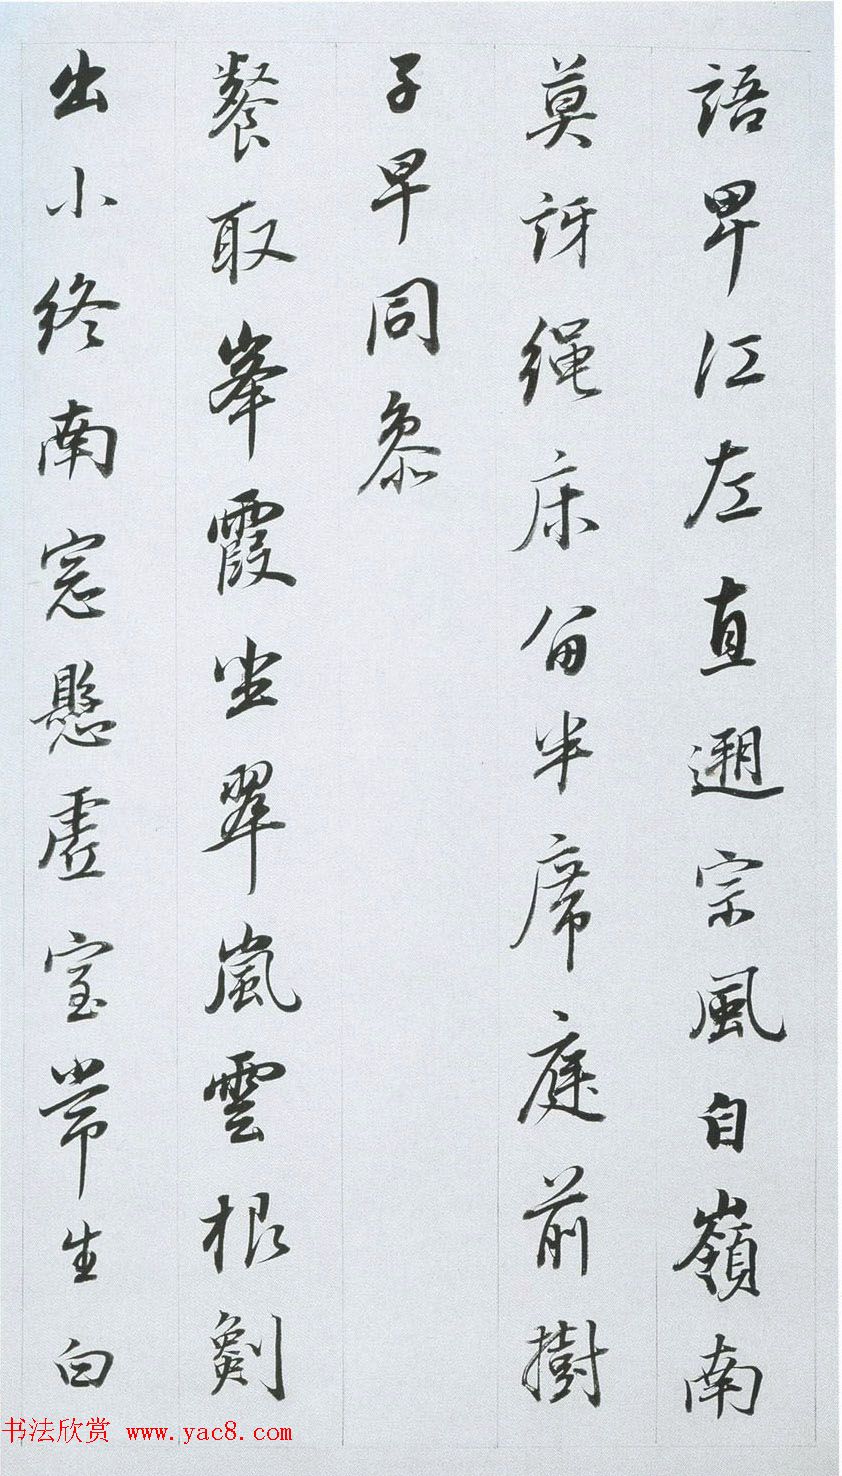 語畢江左直遡宗風自嶺南
莫訝繩床留半席庭前樹
子早同參
餐取峯霞坐翠嵐雲根劖
出小終南窓懸虛室常生白
书法欣赏 www.yac8.com